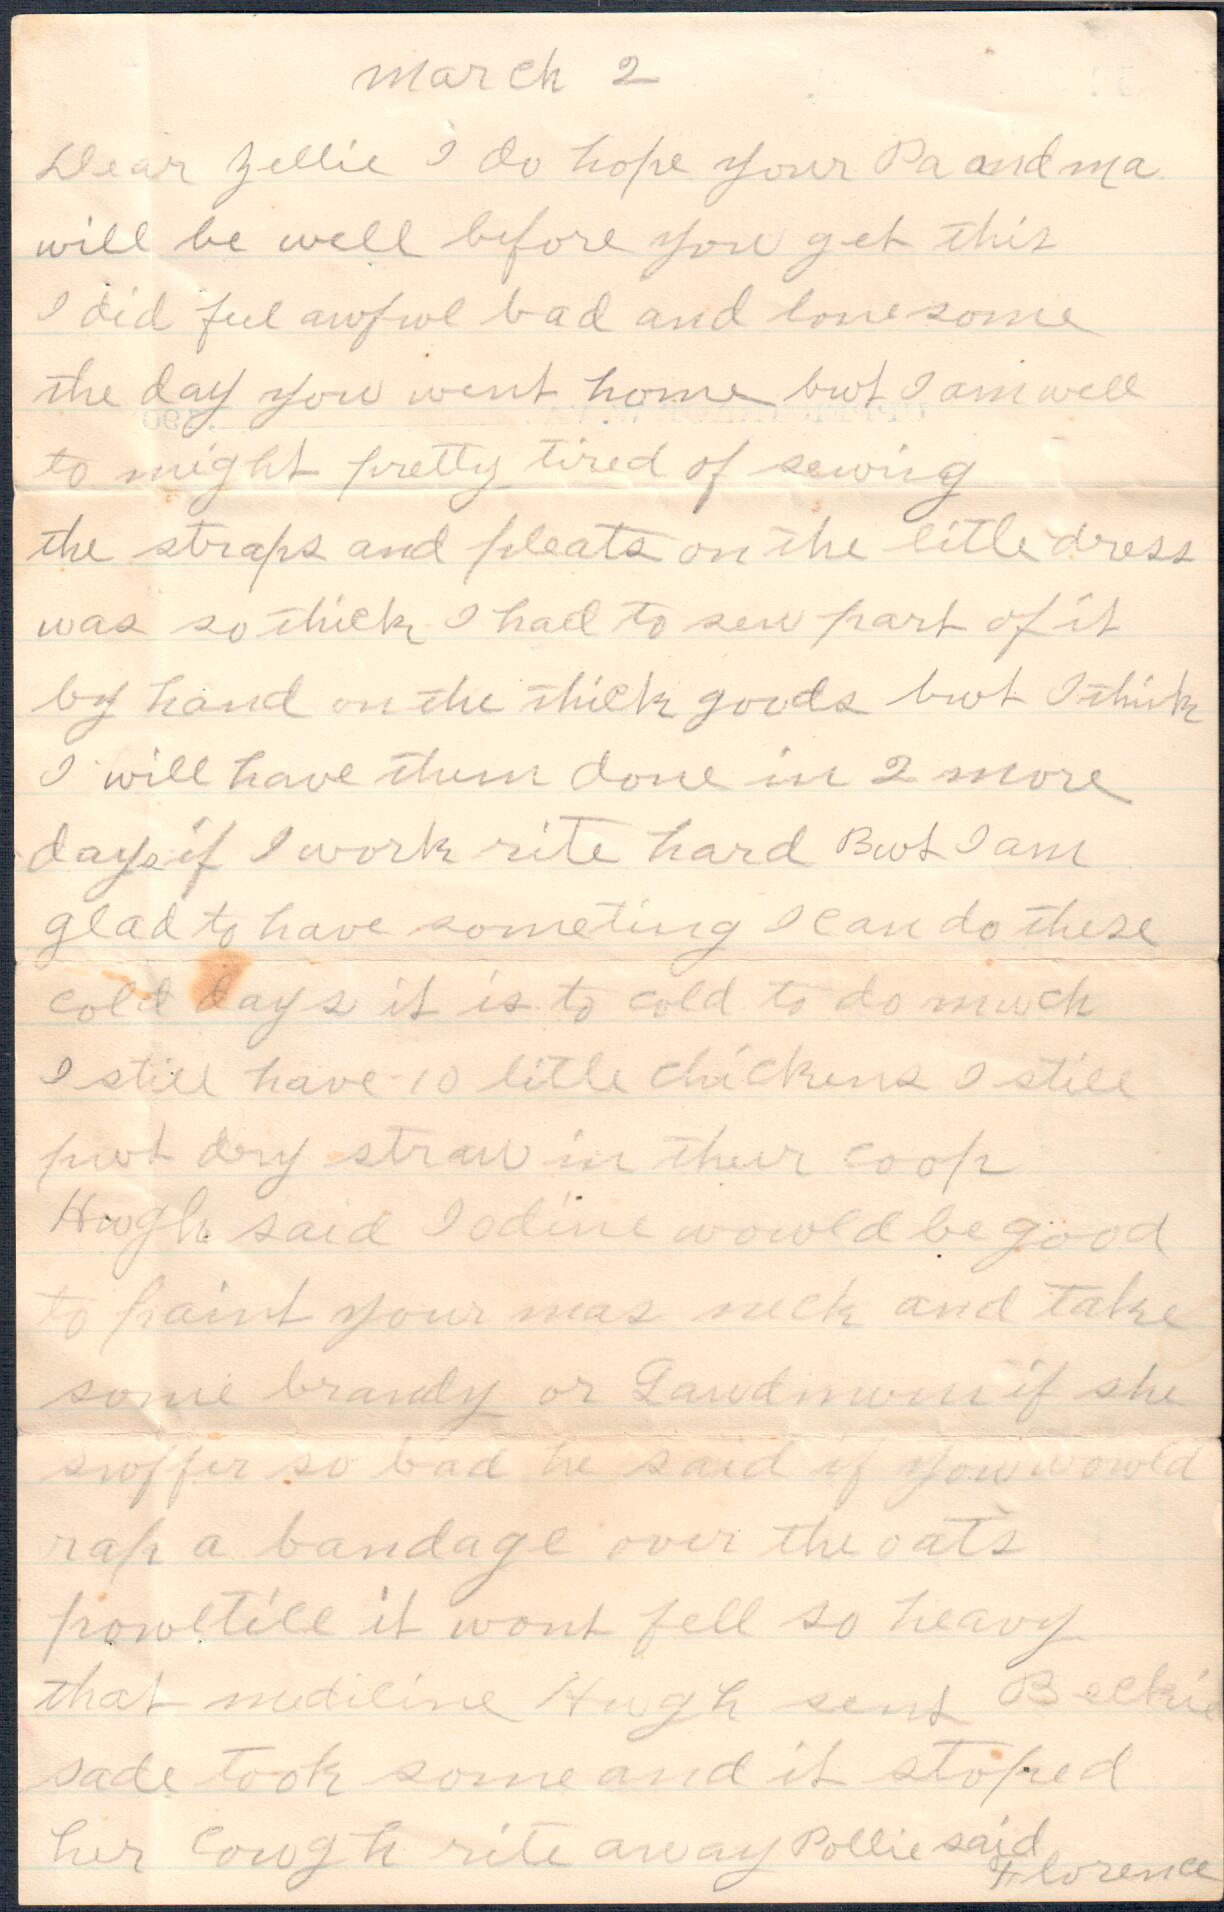 march 2
Dear Zellie I do hope your Pa and ma
will be well before you get this
I did feel awful bad and lonesome
the day you went home but I am well
to night pretty tired of sewing
the straps and pleats on the litle dress
was so thick I had to sew part of it
by hand on the thick goods but I think
I will have them done in 2 more
days if I work rite hard But I am
glad to have someting I can do these
cold days it is to cold to do much
I still have 10 litle chickens I still
put dry straw in their coop
Hugh said Iodine would be good
to paint your mas neck and take
some brandy or Laudmum if she
suffer so bad he said if you would
rap a bandage over the oats
poultice it wont fell so heavy
that medicine Hugh sent Beckie
sade took some and it stoped
her cough rite away Pollie said
Florence